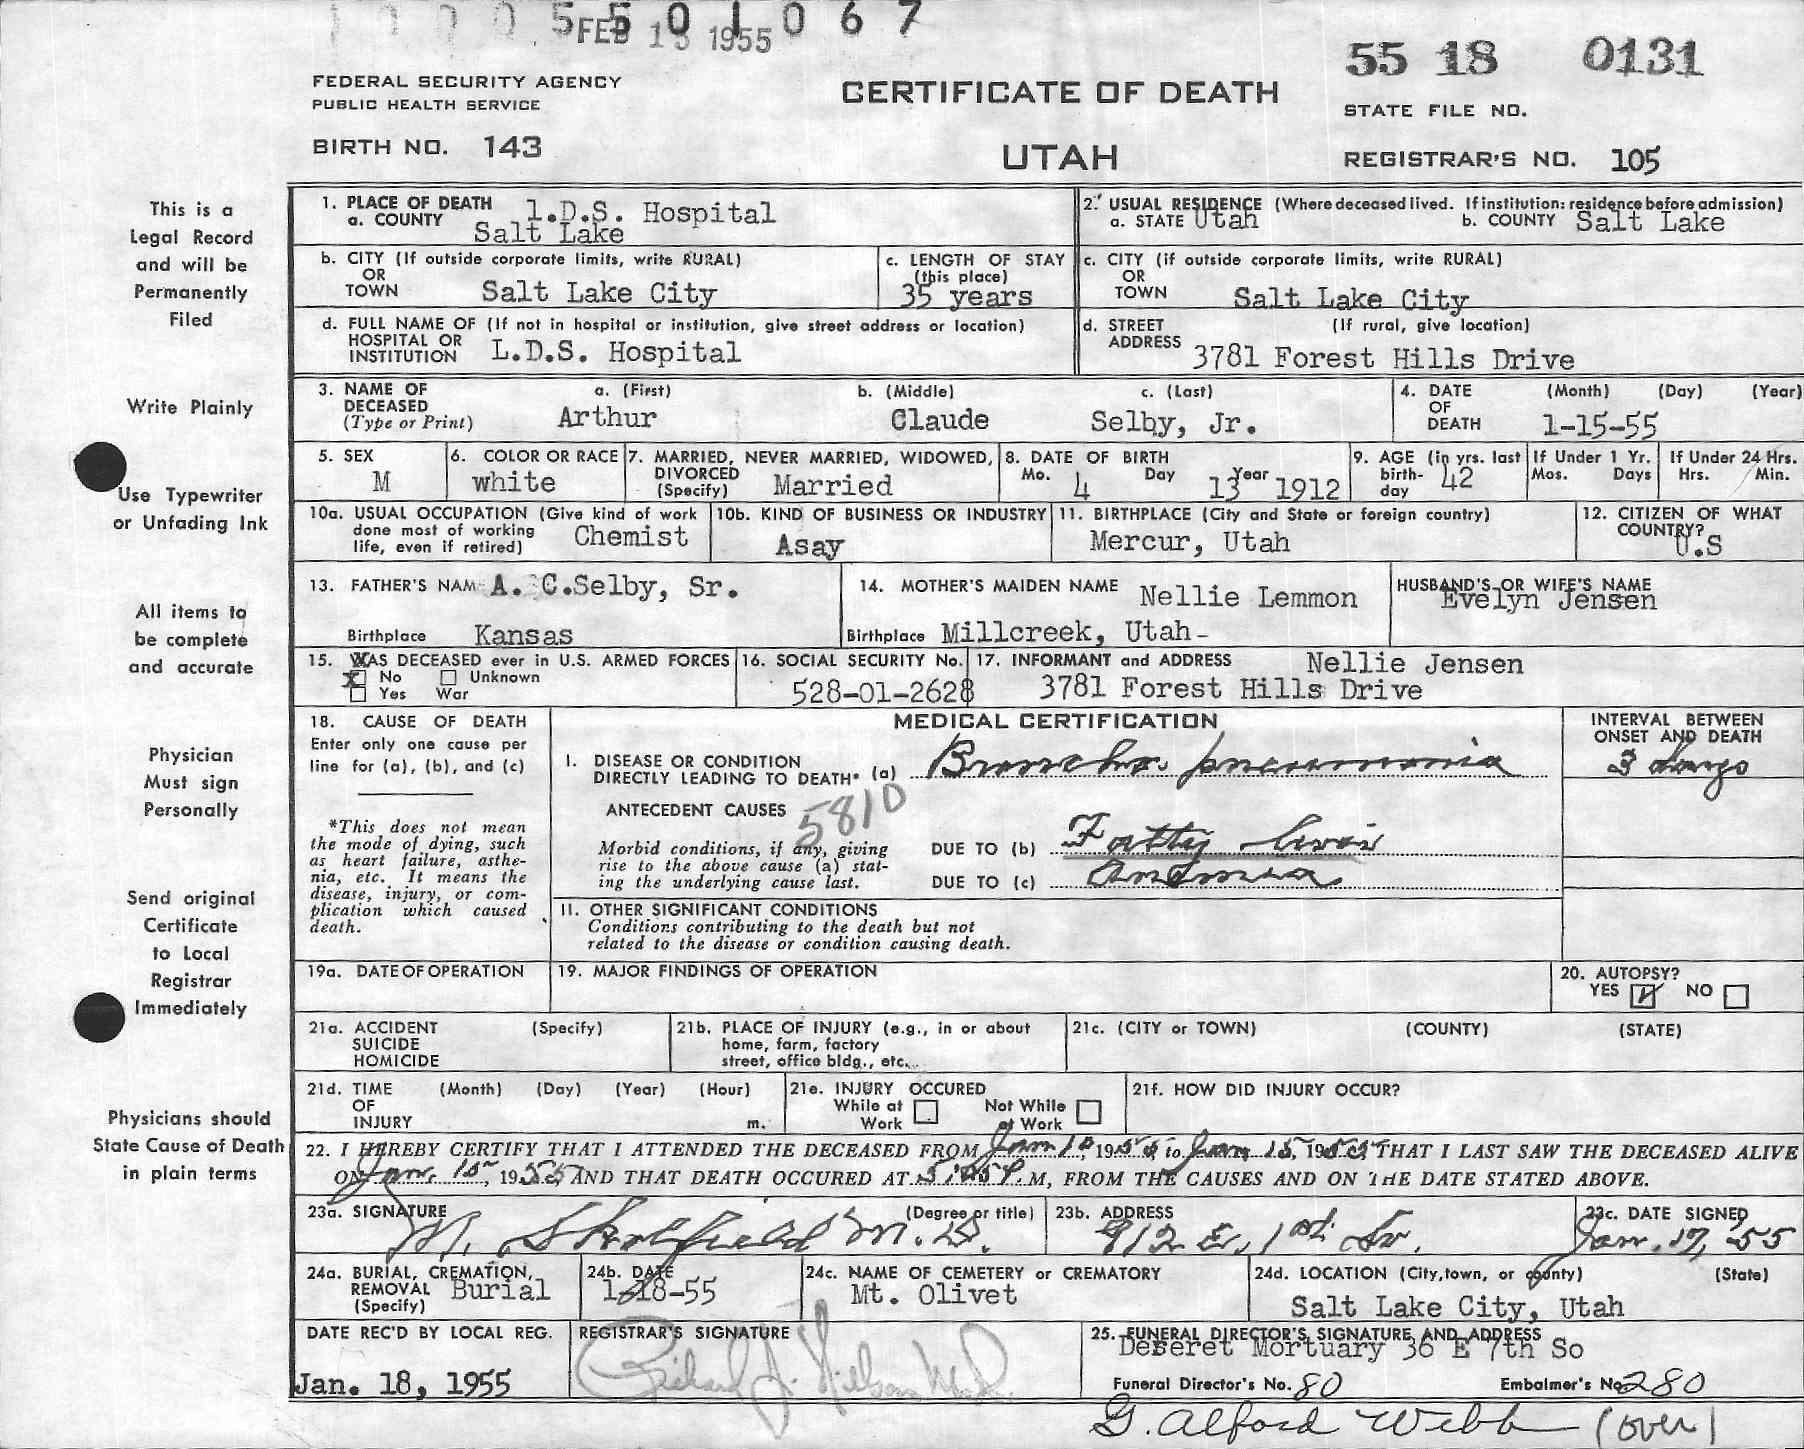 5 5 0 1 0 6 7
FEB 1 1955
55 18 0131
FEDERAL SECURITY AGENCY
PUBLIC HEALTH SERVICE
CERTIFICATE OF DEATH
STATE FILE NO.
BIRTH NO. 143
UTAH
REGISTRAR'S NO. 105
This is a
Legal Record
and will be
Permanently
Filed
Write Plainly
Use Typewriter
or Unfading Ink
All items to
be complete
and accurate
Physician
Must sign
Personally
Send original
Certificate
to Local
Registrar
Immediately
Physicians should
State Cause of Death
in plain terms
1. PLACE OF DEATH l.D.S. Hospital
a. COUNTY Salt Lake
2. USUAL RESIDENCE (Where deceased lived. If institution: residence before admission)
a. STATE Utah b. COUNTY Salt Lake
b. CITY (If outside corporate limits, write RURAL)
OR
TOWN Salt Lake City
c. LENGTH OF STAY
(this place)
35 years
c. CITY (if outside corporate limits, write RURAL)
OR
TOWN Salt Lake City
d. FULL NAME OF (If not in hospital or institution, give street address or location)
HOSPITAL OR
INSTITUTION L.D.S. Hospital
d. STREET (If rural, give location)
ADDRESS 3781 Forest Hills Drive
3. NAME OF a. (First) b. (Middle) c. (Last)
DECEASED
(Type or Print) Arthur Claude Selby, Jr.
4. DATE (Month) (Day) (Year)
OF
DEATH 1-15-55
5. SEX
M
6. COLOR OR RACE
white
7. MARRIED, NEVER MARRIED, WIDOWED,
DIVORCED
(Specify) Married
8. DATE OF BIRTH
Mo. 4 Day 13 Year 1912
9. AGE (in yrs. last
birth-
day 42
If Under 1 Yr.
Mos. Days
If Under 24 Hrs.
Hrs. Min.
10a. USUAL OCCUPATION (Give kind of work
done most of working
life, even if retired) Chemist
10b. KIND OF BUSINESS OR INDUSTRY
Asay
11. BIRTHPLACE (City and State or foreign country)
Mercur, Utah
12. CITIZEN OF WHAT
COUNTRY?
U.S
13. FATHER'S NAM A. C.Selby, Sr.
Birthplace Kansas
14. MOTHER'S MAIDEN NAME Nellie Lemmon
Birthplace Millcreek, Utah-
HUSBAND'S OR WIFE'S NAME
Evelyn Jensen
15. WAS DECEASED ever in U.S. ARMED FORCES
X No Unknown
Yes War
16. SOCIAL SECURITY No.
528-01-2628
17. INFORMANT and ADDRESS Nellie Jensen
3781 Forest Hills Drive
18. CAUSE OF DEATH
Enter only one cause per
line for (a), (b), and (c)
*This does not mean
the mode of dying, such
as heart failure, asthe-
nia, etc. It means the
disease, injury, or com-
plication which caused
death.
MEDICAL CERTIFICATION
INTERVAL BETWEEN
ONSET AND DEATH
I. DISEASE OR CONDITION
DIRECTLY LEADING TO DEATH* (a) Broncho pneumonia 3 days
ANTECEDENT CAUSES 5810
Morbid conditions, if any, giving
rise to the above cause (a) stat-
ing the underlying cause last.
DUE TO (b) Fatty liver
DUE TO (c) Anemia
II. OTHER SIGNIFICANT CONDITIONS
Conditions contributing to the death but not
related to the disease or condition causing death.
19a. DATE OF OPERATION
19. MAJOR FINDINGS OF OPERATION
20. AUTOPSY?
YES NO
21a. ACCIDENT (Specify)
SUICIDE
HOMICIDE
21b. PLACE OF INJURY (e.g., in or about
home, farm, factory
street, office bldg., etc.
21c. (CITY or TOWN) (COUNTY) (STATE)
21d. TIME (Month) (Day) (Year) (Hour)
OF
INJURY m.
21e. INJURY OCCURED
While at Not While
Work at Work
21f. HOW DID INJURY OCCUR?
22. I HEREBY CERTIFY THAT I ATTENDED THE DECEASED FROM Jan 1, 1955 to Jan 15, 1955 THAT I LAST SAW THE DECEASED ALIVE
ON Jan. 15, 1955 AND THAT DEATH OCCURED AT P.M, FROM THE CAUSES AND ON THE DATE STATED ABOVE.
23a. SIGNATURE (Degree or title)
M. M.D.
23b. ADDRESS
912 E. 1st So.
23c. DATE SIGNED
Jan. 17, 55
24a. BURIAL, CREMATION,
REMOVAL Burial
(Specify)
24b. DATE
1-18-55
24c. NAME OF CEMETERY or CREMATORY
Mt. Olivet
24d. LOCATION (City,town, or county) (State)
Salt Lake City, Utah
DATE REC'D BY LOCAL REG.
Jan. 18, 1955
REGISTRAR'S SIGNATURE
Richard J. Nelson
25. FUNERAL DIRECTOR'S SIGNATURE AND ADDRESS
Deseret Mortuary 36 E 7th So
Funeral Director's No. 80 Embalmer's No 280
G. Alford Webb (over)